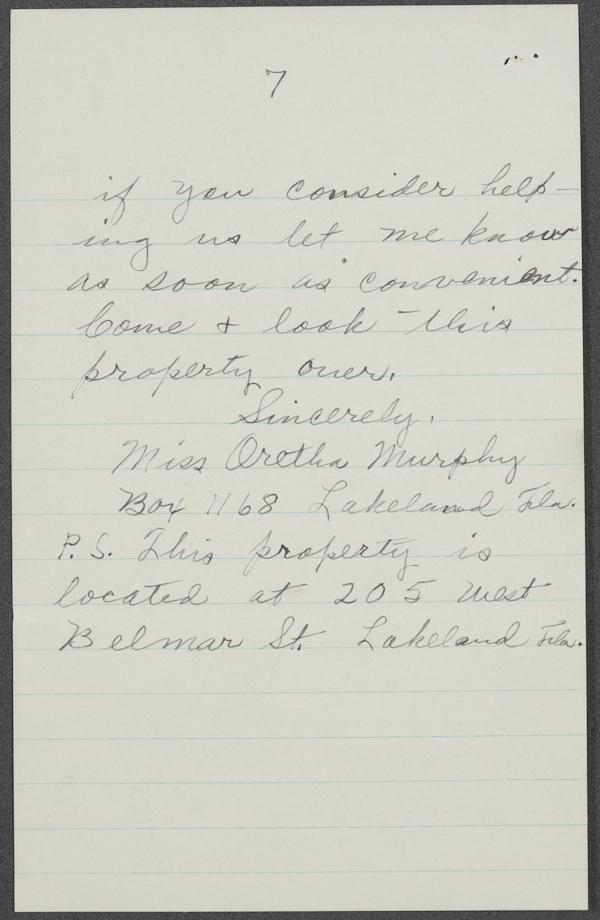 7
if you consider help-
ing us let me know
as soon as convenient.
Come & look this
property over.
Sincerely,
Miss Oretha Murphy
Box 1168 Lakeland Fla.
P.S. This property is
located at 205 West
Belmar St. Lakeland Fla.